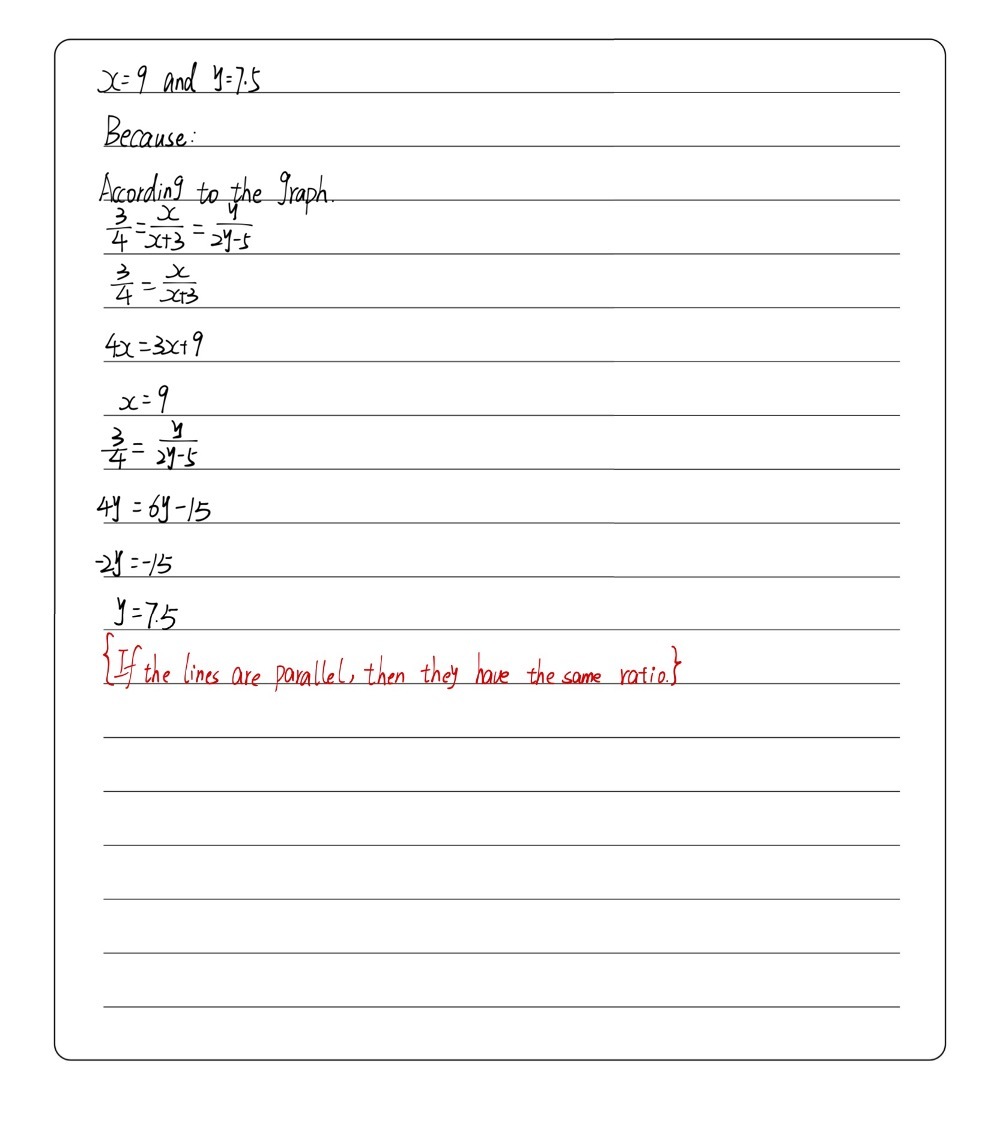 x=9 and y=7.5
Because:
According to the graph.
3/4 = x/x+3 = y/2y-5
3/4 = x/x+3
4x=3x+9
x=9
3/4 = y/2y-5
4y=6y-15
-2y=-15
y=7.5
{If the lines are parallel, then they have the same ratio.}